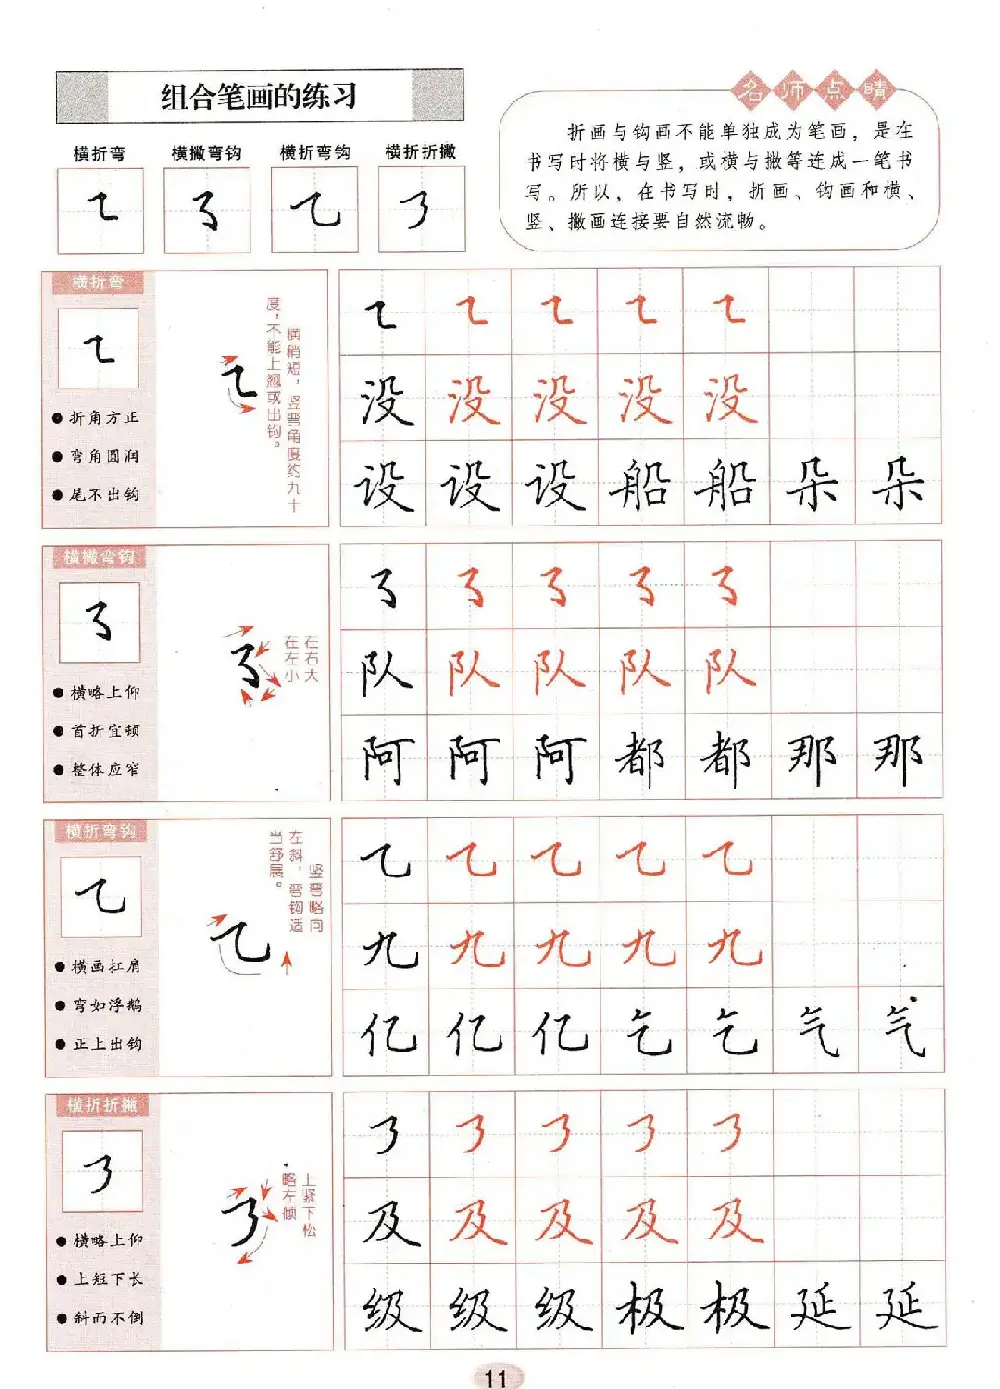 组合笔画的练习
名师点睛
折画与钩画不能单独成为笔画，是在
书写时将横与竖，或横与撇等连成一笔书
写。所以，在书写时，折画、钩画和横、
竖、撇画连接要自然流畅。
横折弯 横撇弯钩 横折弯钩 横折折撇
横折弯
折角方正
弯角圆润
尾不出钩
横稍短，竖弯角度约九十
度，不能上翘或出钩。
没 没 没 没 没
设 设 设 船 船 朵 朵
横撇弯钩
横略上仰
首折宜顿
整体应窄
在右大
在左小
队 队 队 队 队
阿 阿 阿 都 都 那 那
横折弯钩
横画扛肩
弯如浮鹅
正上出钩
竖弯略向
左斜，弯钩适
当舒展。
乙 乙 乙 乙 乙
九 九 九 九 九
亿 亿 亿 乞 乞 气 气
横折折撇
横略上仰
上短下长
斜而不倒
上紧下松
略左倾
及 及 及 及 及
级 级 级 极 极 延 延
11